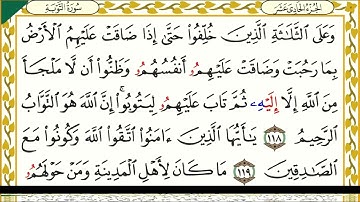 الجزء الحادي عشر سورة التوبة
وَعَلَى ٱلثَّلَٰثَةِ ٱلَّذِينَ خُلِّفُوا۟ حَتَّىٰٓ إِذَا ضَاقَتْ عَلَيْهِمُ ٱلْأَرْضُ
بِمَا رَحُبَتْ وَضَاقَتْ عَلَيْهِمُۥٓ أَنفُسُهُمُۥ وَظَنُّوٓا۟ أَن لَّا مَلْجَأَ
مِنَ ٱللَّهِ إِلَّآ إِلَيْهِۦ ثُمَّ تَابَ عَلَيْهِمُۥ لِيَتُوبُوٓا۟ۚ إِنَّ ٱللَّهَ هُوَ ٱلتَّوَّابُ
ٱلرَّحِيمُ ١١٨ يَٰٓأَيُّهَا ٱلَّذِينَ ءَامَنُوا۟ ٱتَّقُوا۟ ٱللَّهَ وَكُونُوا۟ مَعَ
ٱلصَّٰدِقِينَ ١١٩ مَا كَانَ لِأَهْلِ ٱلْمَدِينَةِ وَمَنْ حَوْلَهُمُۥ